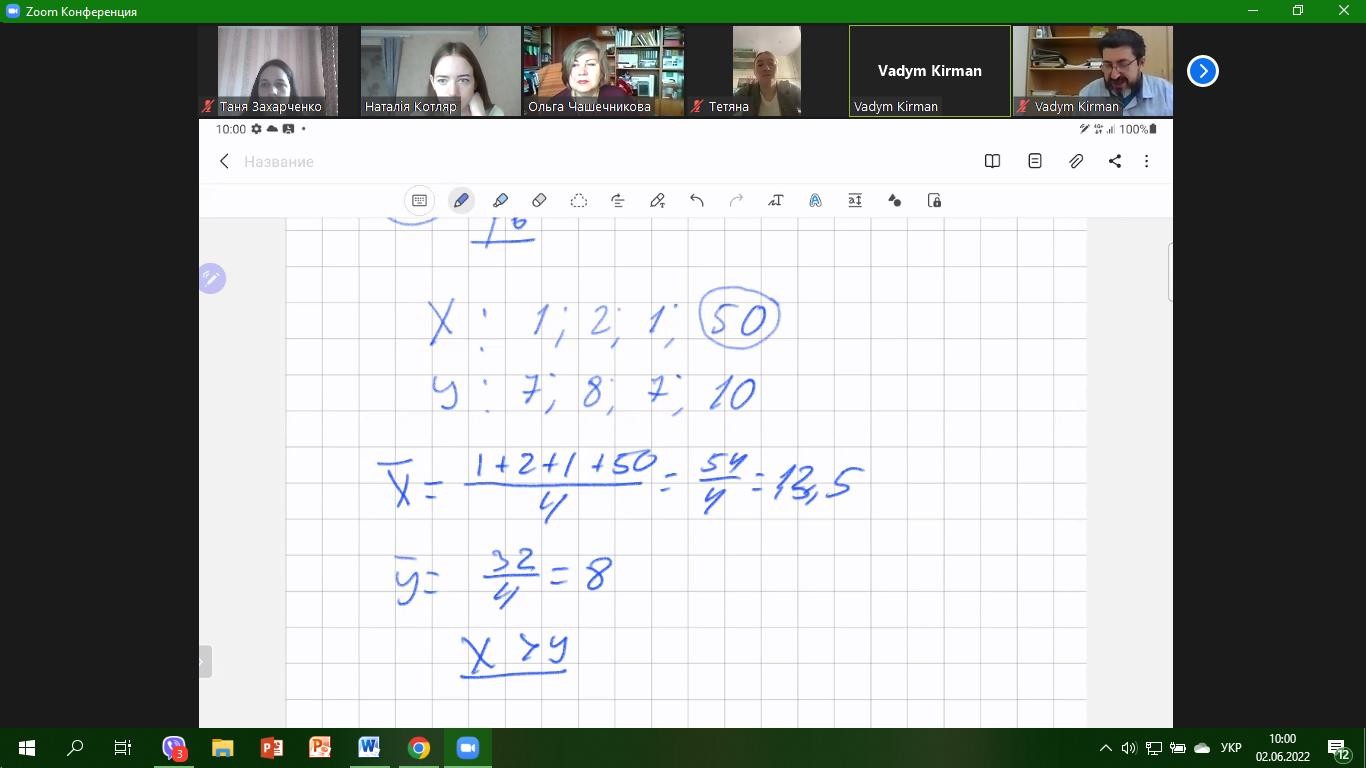 Zoom Конференция
Vadym Kirman
Таня Захарченко
Наталія Котляр
Ольга Чашечникова
Тетяна
Vadym Kirman
Vadym Kirman
10:00
100%
Название
X : 1; 2; 1; 50
y : 7; 8; 7; 10
X̅ = (1+2+1+50)/4 = 54/4 = 13,5
y̅ = 32/4 = 8
X > y
3
УКР
10:00
02.06.2022
12